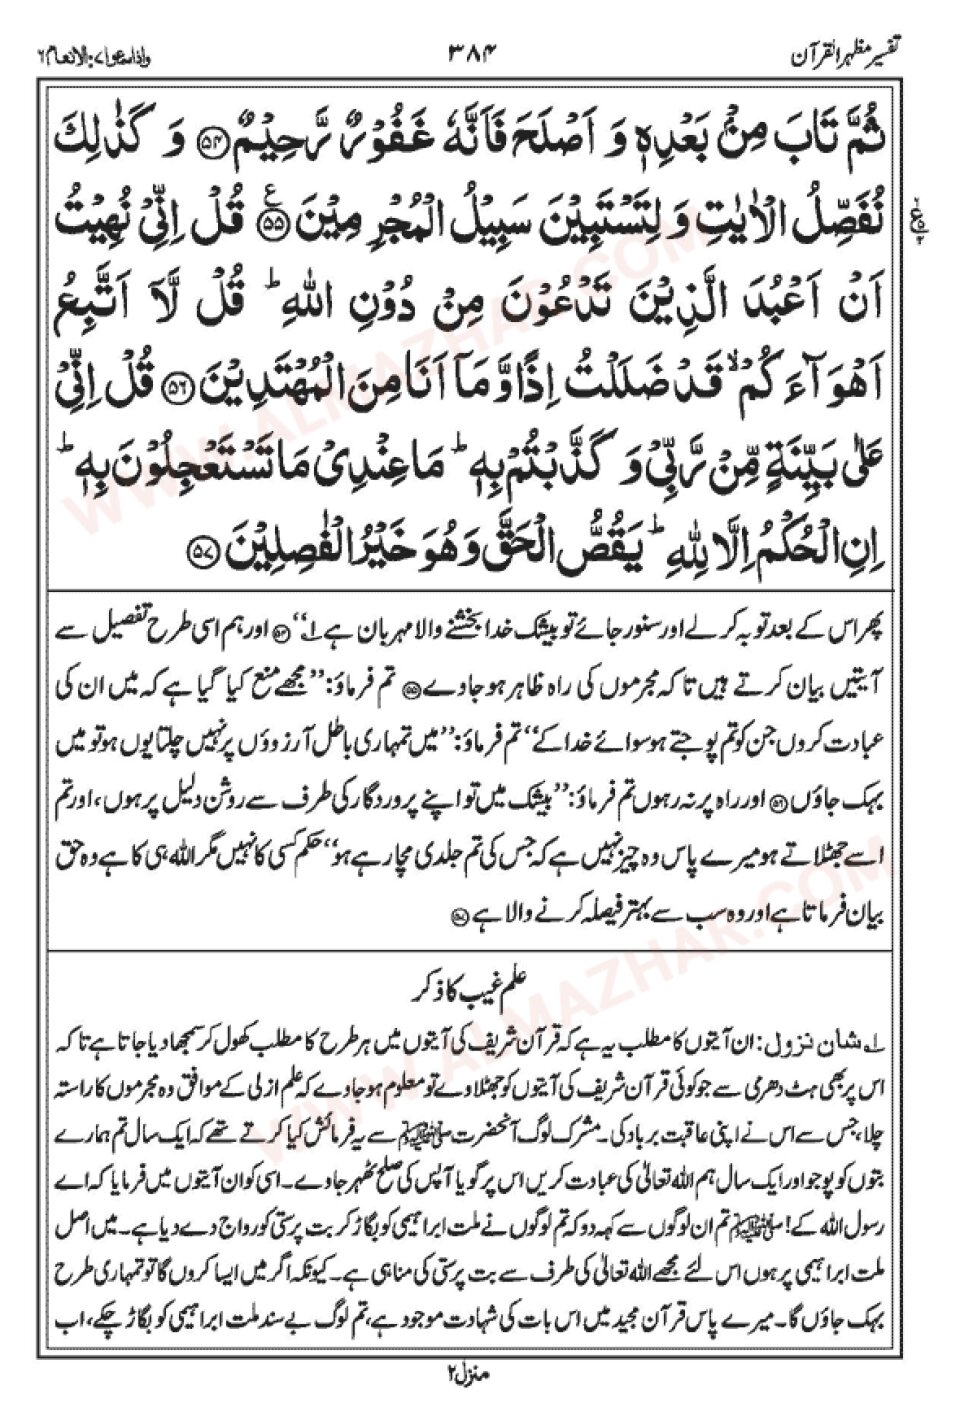 تفسیر مظہر القرآن
۳۸۴
واذاسمعوا۷:الانعام۶
ثُمَّ تَابَ مِنْۢ بَعْدِهٖ وَ اَصْلَحَ فَاَنَّهٗ غَفُوْرٌ رَّحِیْمٌ ﴿۵۴﴾ وَ كَذٰلِكَ
نُفَصِّلُ الْاٰیٰتِ وَ لِتَسْتَبِیْنَ سَبِیْلُ الْمُجْرِمِیْنَ ﴿۵۵﴾ ع قُلْ اِنِّیْ نُهِیْتُ
اَنْ اَعْبُدَ الَّذِیْنَ تَدْعُوْنَ مِنْ دُوْنِ اللهِ ؕ قُلْ لَّاۤ اَتَّبِعُ
اَهْوَآءَكُمْ ۙ قَدْ ضَلَلْتُ اِذًا وَّ مَاۤ اَنَا مِنَ الْمُهْتَدِیْنَ ﴿۵۶﴾ قُلْ اِنِّیْ
عَلٰی بَیِّنَةٍ مِّنْ رَّبِّیْ وَ كَذَّبْتُمْ بِهٖ ؕ مَا عِنْدِیْ مَا تَسْتَعْجِلُوْنَ بِهٖ ؕ
اِنِ الْحُكْمُ اِلَّا لِلّٰهِ ؕ یَقُصُّ الْحَقَّ وَ هُوَ خَیْرُ الْفٰصِلِیْنَ ﴿۵۷﴾
پھر اس کے بعد توبہ کرلے اور سنور جائے تو بیشک خدا بخشنے والا مہربان ہے ۱؎‘‘ ﴿۵۴﴾ اور ہم اسی طرح تفصیل سے
آیتیں بیان کرتے ہیں تاکہ مجرموں کی راہ ظاہر ہوجاوے ﴿۵۵﴾ تم فرماؤ: ’’مجھے منع کیا گیا ہے کہ میں ان کی
عبادت کروں جن کو تم پوجتے ہو سوائے خدا کے‘‘ تم فرماؤ: ’’میں تمہاری باطل آرزوؤں پر نہیں چلتا یوں ہو تو میں
بہک جاؤں ﴿۵۶﴾ اور راہ پر نہ رہوں تم فرماؤ: ’’بیشک میں تو اپنے پروردگار کی طرف سے روشن دلیل پر ہوں، اور تم
اسے جھٹلاتے ہو میرے پاس وہ چیز نہیں ہے کہ جس کی تم جلدی مچارہے ہو‘‘ حکم کسی کا نہیں مگر اللہ ہی کا ہے وہ حق
بیان فرماتا ہے اور وہ سب سے بہتر فیصلہ کرنے والا ہے ﴿۵۷﴾
علم غیب کا ذکر
۱؎ شان نزول: ان آیتوں کا مطلب یہ ہے کہ قرآن شریف کی آیتوں میں ہر طرح کا مطلب کھول کر سمجھا دیا جاتا ہے تاکہ
اس پر بھی ہٹ دھرمی سے جو کوئی قرآن شریف کی آیتوں کو جھٹلاوے تو معلوم ہوجاوے کہ علم ازلی کے موافق وہ مجرموں کا راستہ
چلا، جس سے اس نے اپنی عاقبت برباد کی۔ مشرک لوگ آنحضرت ﷺ سے یہ فرمائش کیا کرتے تھے کہ ایک سال تم ہمارے
بتوں کو پوجو اور ایک سال ہم اللہ تعالیٰ کی عبادت کریں اس پر گویا آپس کی صلح ٹھہر جاوے۔ اسی کو ان آیتوں میں فرمایا کہ اے
رسول اللہ کے! ﷺ تم ان لوگوں سے کہہ دو کہ تم لوگوں نے ملت ابراہیمی کو بگاڑ کر بت پرستی کو رواج دے دیا ہے۔ میں اصل
ملت ابراہیمی پر ہوں اس لئے مجھے اللہ تعالیٰ کی طرف سے بت پرستی کی مناہی ہے۔ کیونکہ اگر میں ایسا کروں گا تو تمہاری طرح
بہک جاؤں گا۔ میرے پاس قرآن مجید میں اس بات کی شہادت موجود ہے، تم لوگ بے سند ملت ابراہیمی کو بگاڑ چکے، اب
منزل۲
WWW.ALMAZHAR.COM
WWW.ALMAZHAR.COM